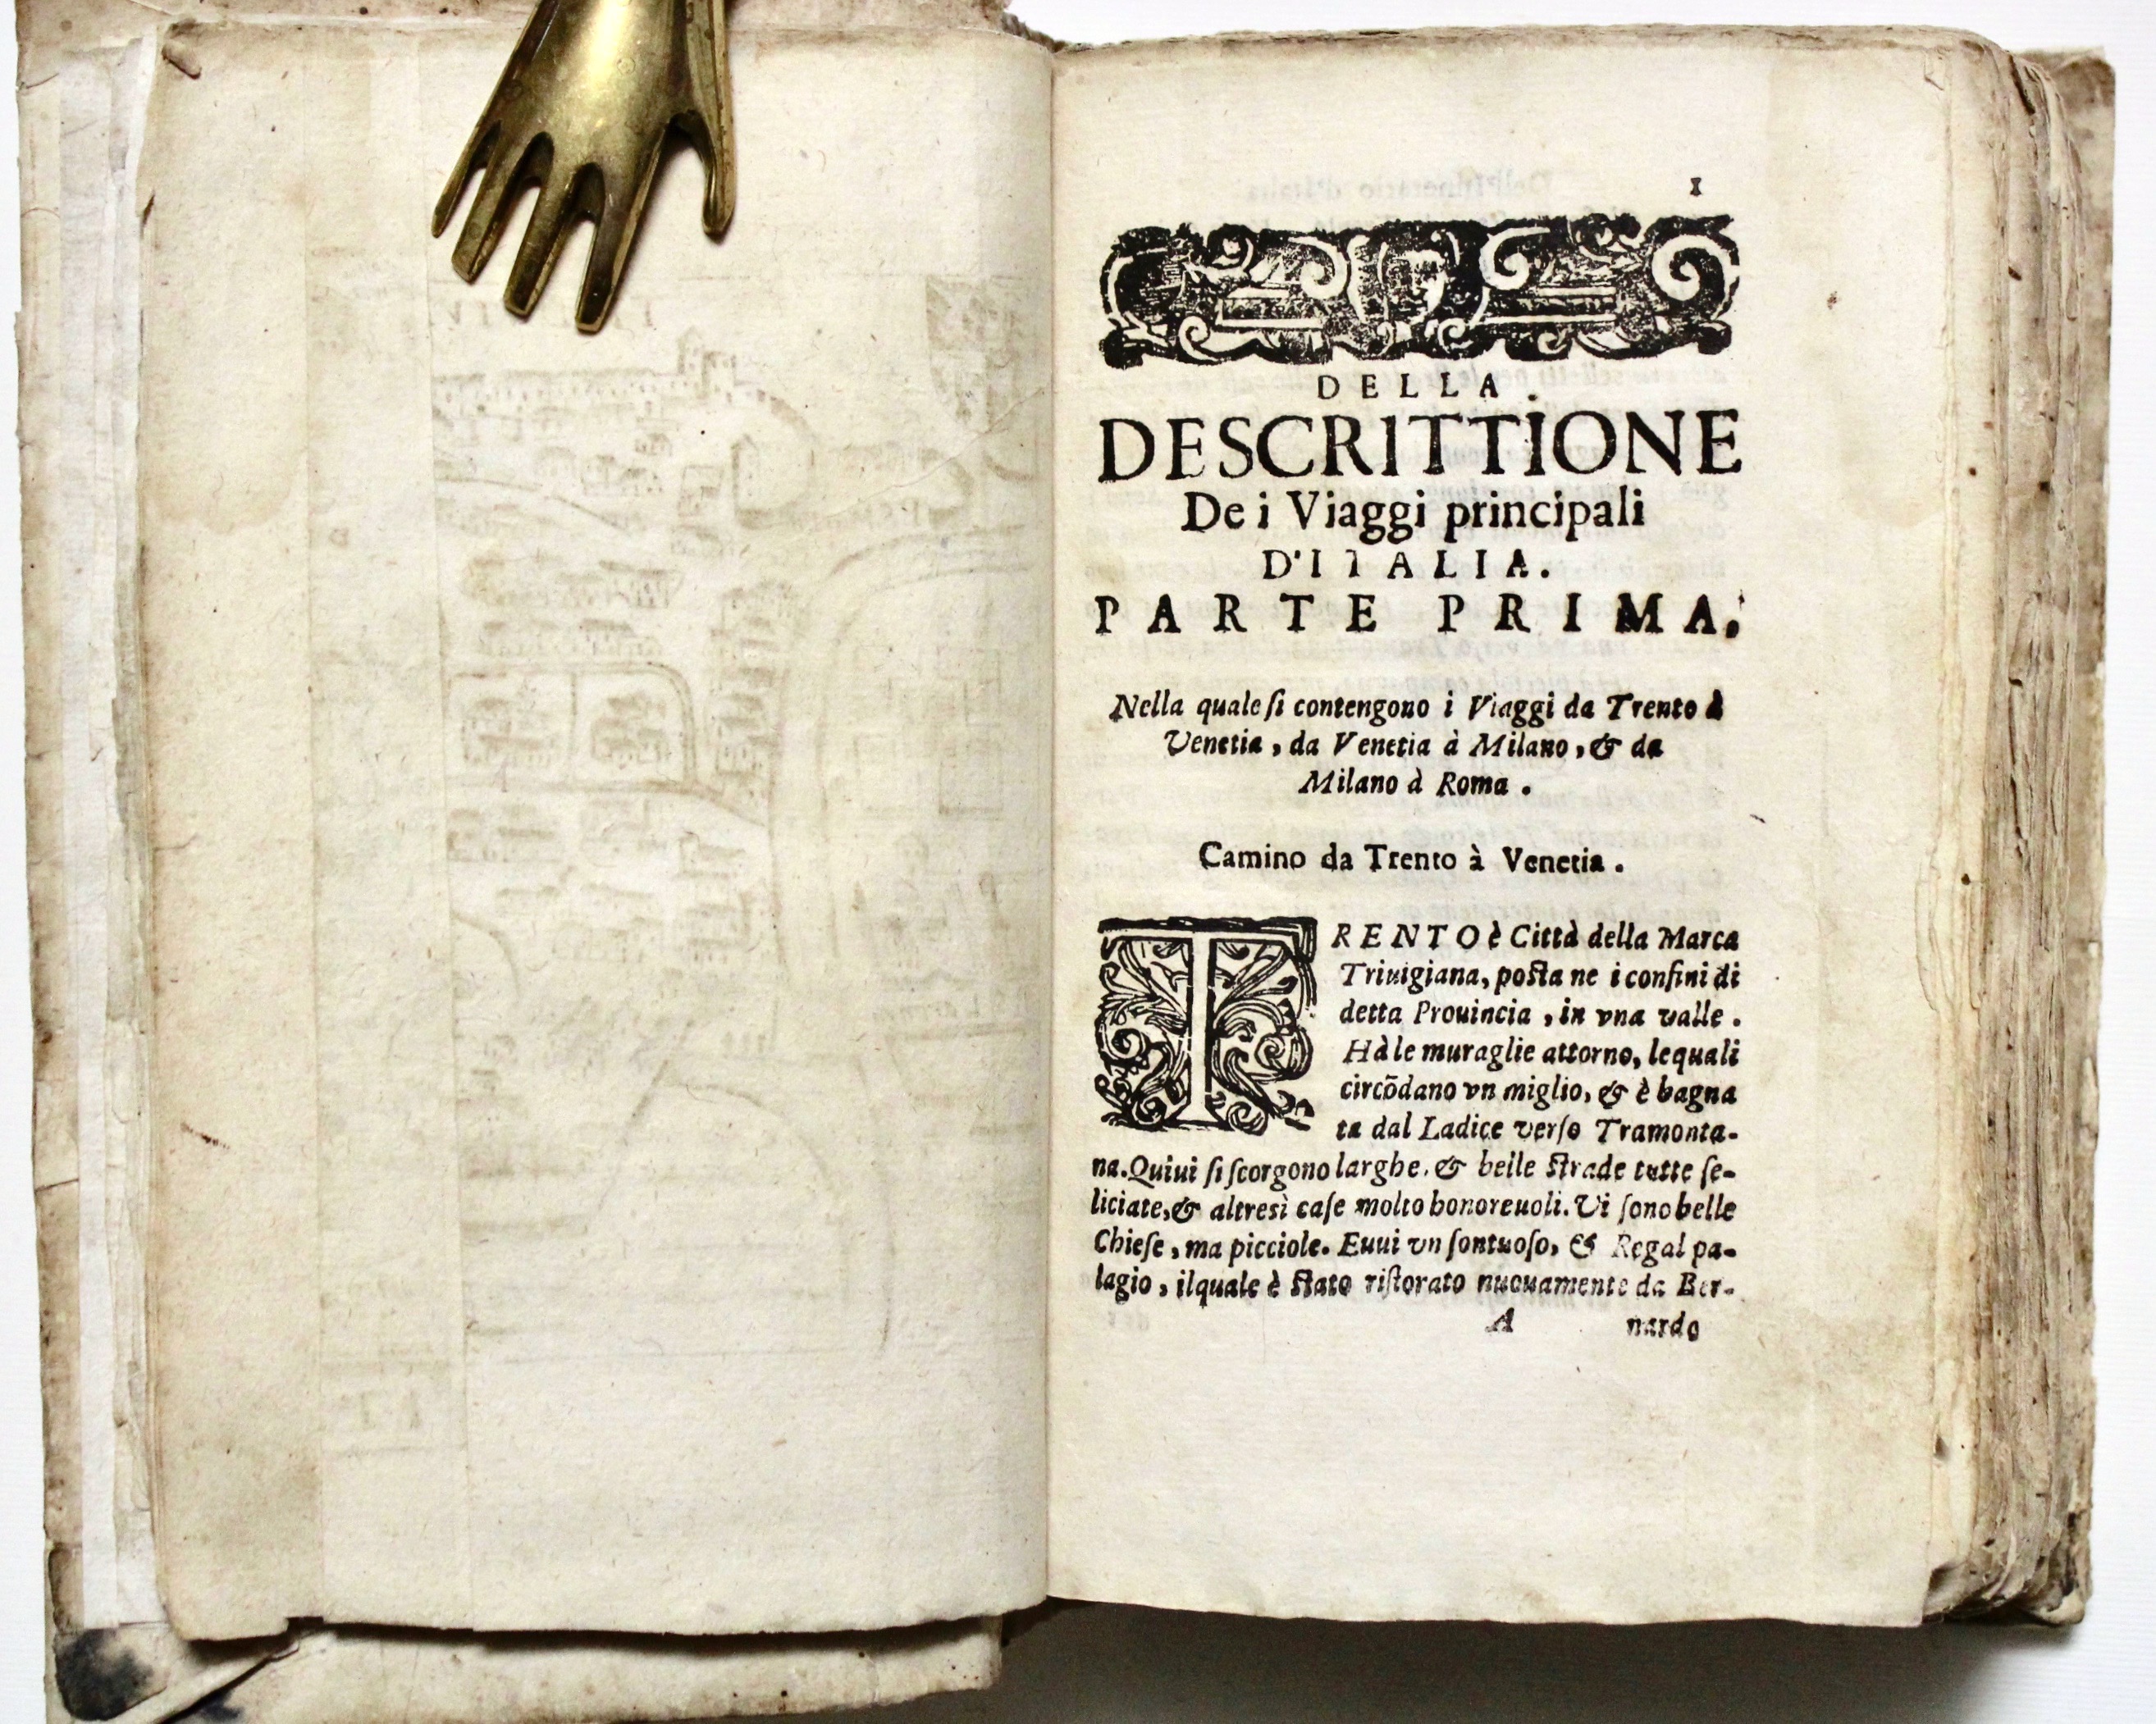 1
DELLA
DESCRITTIONE
De i Viaggi principali
D'ITALIA.
PARTE PRIMA.
Nella quale ſi contengono i Viaggi da Trento à
Venetia, da Venetia à Milano, & da
Milano à Roma.
Camino da Trento à Venetia.
TRENTO è Città della Marca
Triuigiana, poſta ne i confini di
detta Prouincia, in vna valle.
Hà le muraglie attorno, lequali
circōdano vn miglio, & è bagna
ta dal Ladice verſo Tramonta-
na. Quiui ſi ſcorgono larghe, & belle ſtrade tutte ſe-
liciate, & altresì caſe molto honoreuoli. Vi ſono belle
Chieſe, ma picciole. Euui vn ſontuoſo, & Regal pa-
lagio, ilquale è ſtato riſtorato nuouamente da Ber-
A nardo